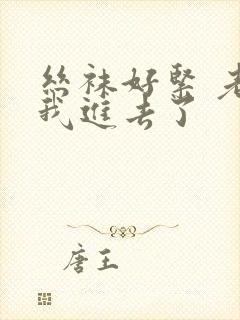 丝袜好紧 老
我进去了
唐王